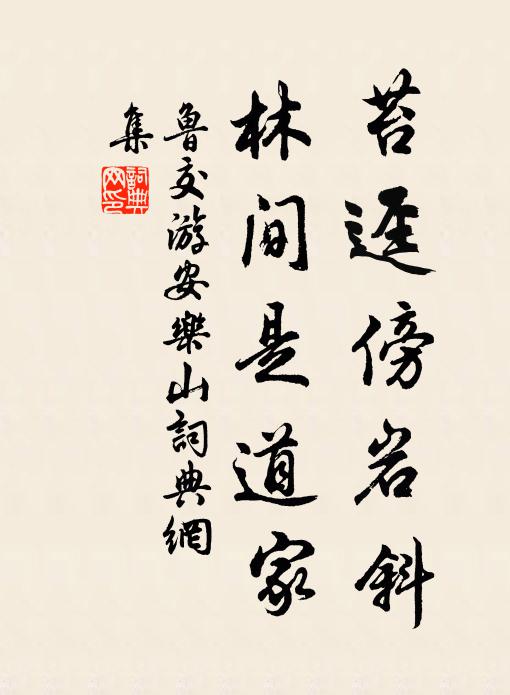 苔迳傍岩斜
林间是道家
鲁交游安樂山詞典網
集
詞典网印